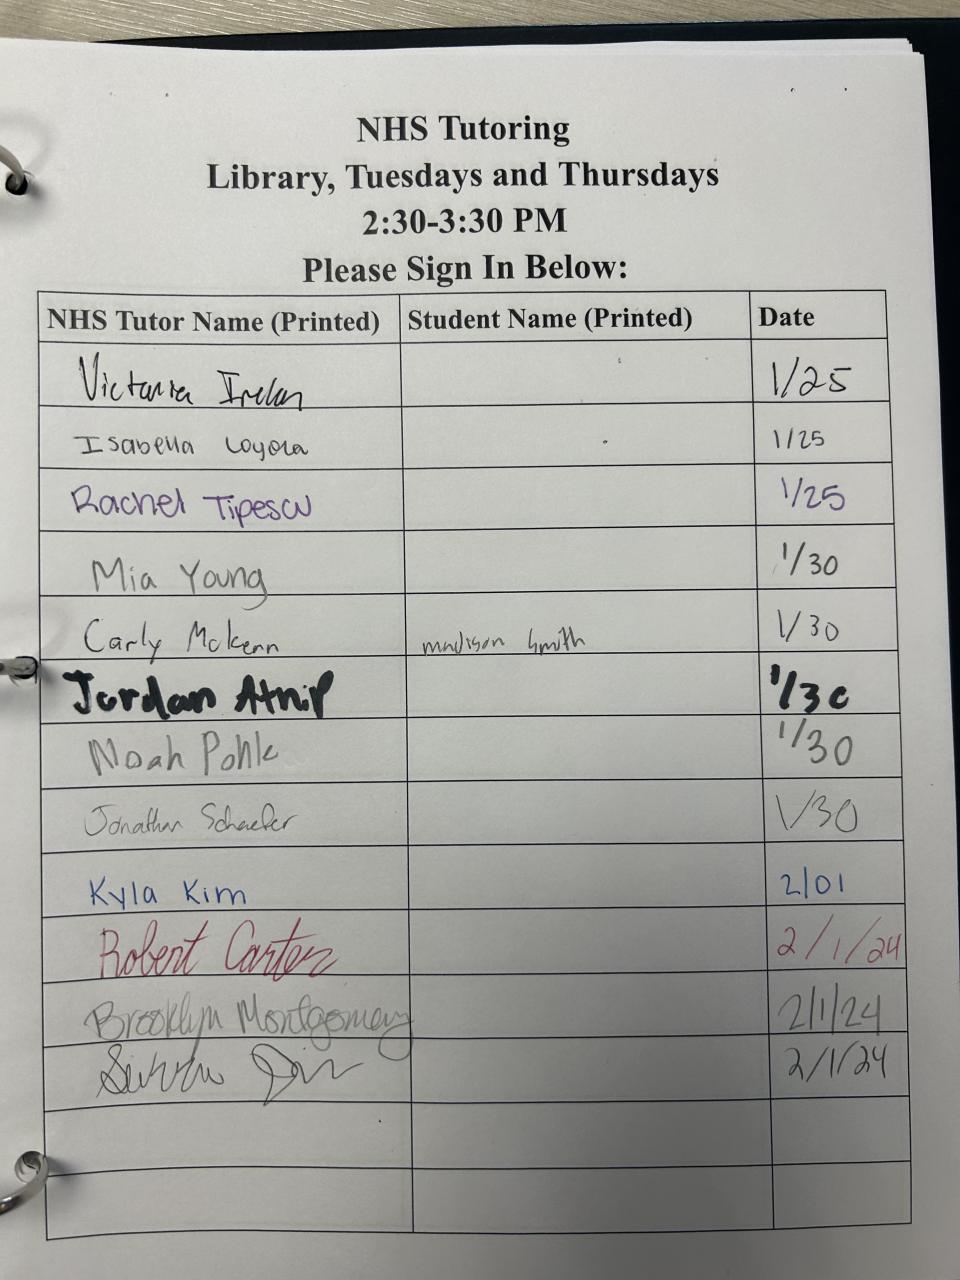 NHS Tutoring
Library, Tuesdays and Thursdays
2:30-3:30 PM
Please Sign In Below:
NHS Tutor Name (Printed) Student Name (Printed) Date
Victoria Irelan 1/25
Isabella Loyola 1/25
Rachel Tipescu 1/25
Mia Young 1/30
Carly McKenn madison Smith 1/30
Jordan Atnip 1/30
Noah Pohlc 1/30
Jonathan Schaefer 1/30
Kyla Kim 2/01
Robert Carter 2/1/24
Brooklyn Montgomery 2/1/24
2/1/24